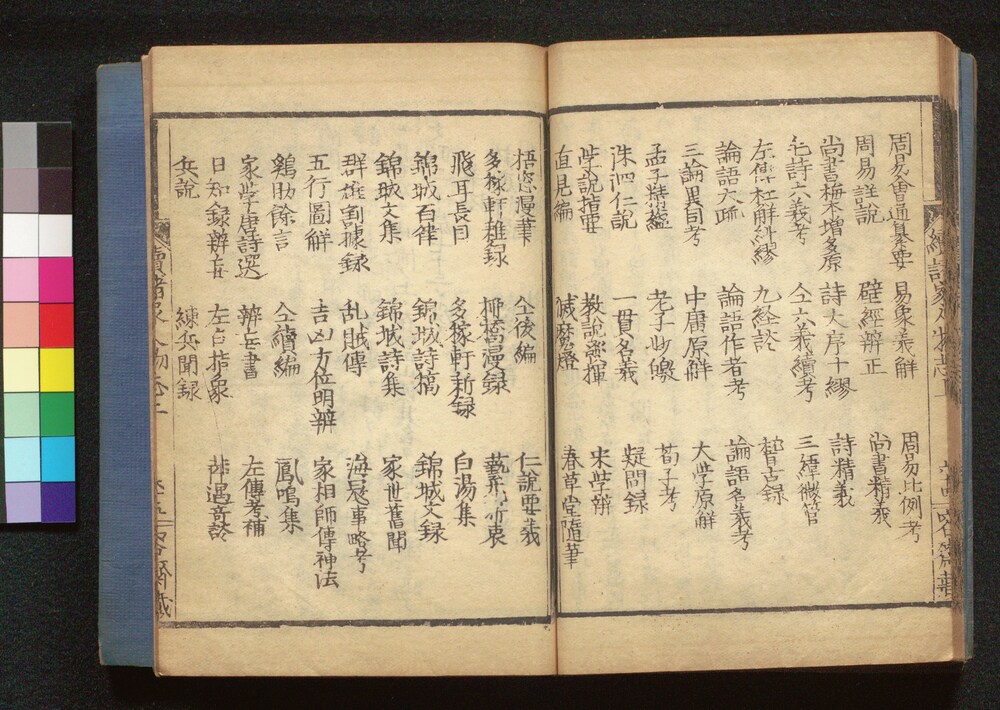 周易會通纂要　易象義解　周易比例考
周易註説　壁經辨正　尚書精義
尚書梅本增多原　詩大序十繆　詩精義
毛詩六義考　仝六義續考　三緯微管
左傳杜解紕繆　九経談　稽古録
論語大疏　論語作者考　論語名義考
三論異同考　中庸原解　大学原解
孟子精蘊　老子妙皦　荀子考
洙泗仁説　一貫名義　疑問録
学説指要　教説發揮　宋学辨
直見編　滅麽燈　春草堂隨筆
梧窓漫筆　仝後編　仁説要義
多稼軒雜録　櫛揥漫録
飛耳長目　多稼軒新録　白湯集
錦城百律　錦城詩稿　錦城文録
錦城文集　錦城詩集　家世舊聞
群雄割據録　乱賊傳　海寇事略考
五行圖解　吉凶方位明辨　家相師傳神法
鷄肋餘言　仝續編　鳳鳴集
家学唐詩選　辨妄書　左傳考補
日知録辨妄　左占指象
兵説　練兵聞録
續諸家人物志